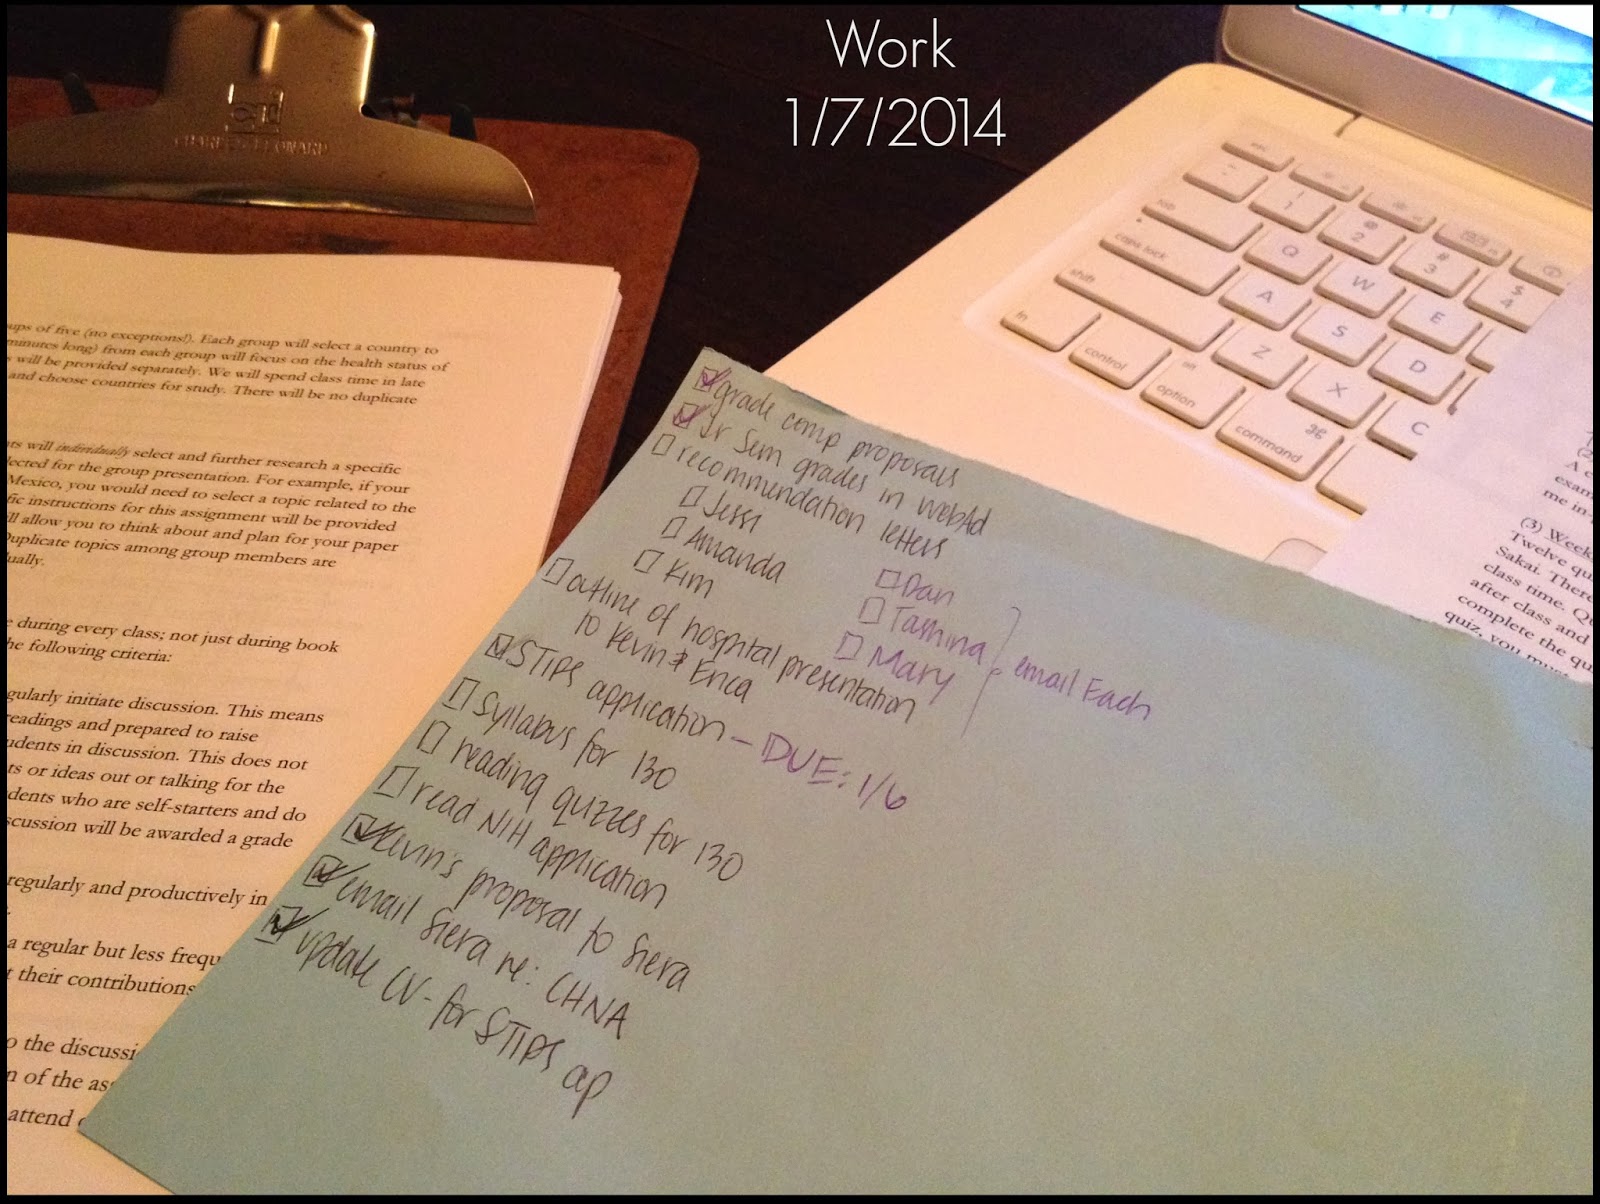 Work
1/7/2014
CHARLES LEONARD
ups of five (no exceptions!). Each group will select a country to
minutes long) from each group will focus on the health status of
s will be provided separately. We will spend class time in late
and choose countries for study. There will be no duplicate
ts will individually select and further research a specific
lected for the group presentation. For example, if your
Mexico, you would need to select a topic related to the
fic instructions for this assignment will be provided
ll allow you to think about and plan for your paper
Duplicate topics among group members are
ually.
e during every class; not just during book
he following criteria:
gularly initiate discussion. This means
readings and prepared to raise
udents in discussion. This does not
ts or ideas out or talking for the
dents who are self-starters and do
scussion will be awarded a grade
regularly and productively in
a regular but less frequ
t their contributions
o the discussi
n of the as
attend
grade comp proposals
Jr Sem grades in WebAd
recommendation letters
Jessi
Amanda
Kim
Dan
Tashina
Mary
email Each
outline of hospital presentation
to Kevin & Erica
STIPS application - DUE: 1/6
Syllabus for 130
reading quizzes for 130
read NIH application
Kevin's proposal to Siera
email Siera re: CHNA
update CV - for STIPS ap
esc
~
`
!
1
@
2
#
3
$
4
tab
Q
W
E
caps lock
A
S
D
shift
Z
X
C
fn
control
alt
option
⌘
command
(2)
A c
exam
me in
(3) Week
Twelve qu
Sakai. There
class time. Qu
after class and
complete the qu
quiz, you must